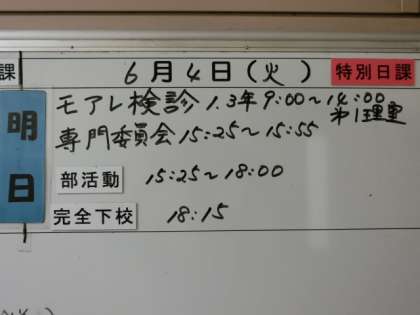 課 6月4日(火) 特別日課
明日
モアレ検診 1.3年 9:00~14:00
第1理室
専門委員会 15:25~15:55
部活動 15:25~18:00
完全下校 18:15